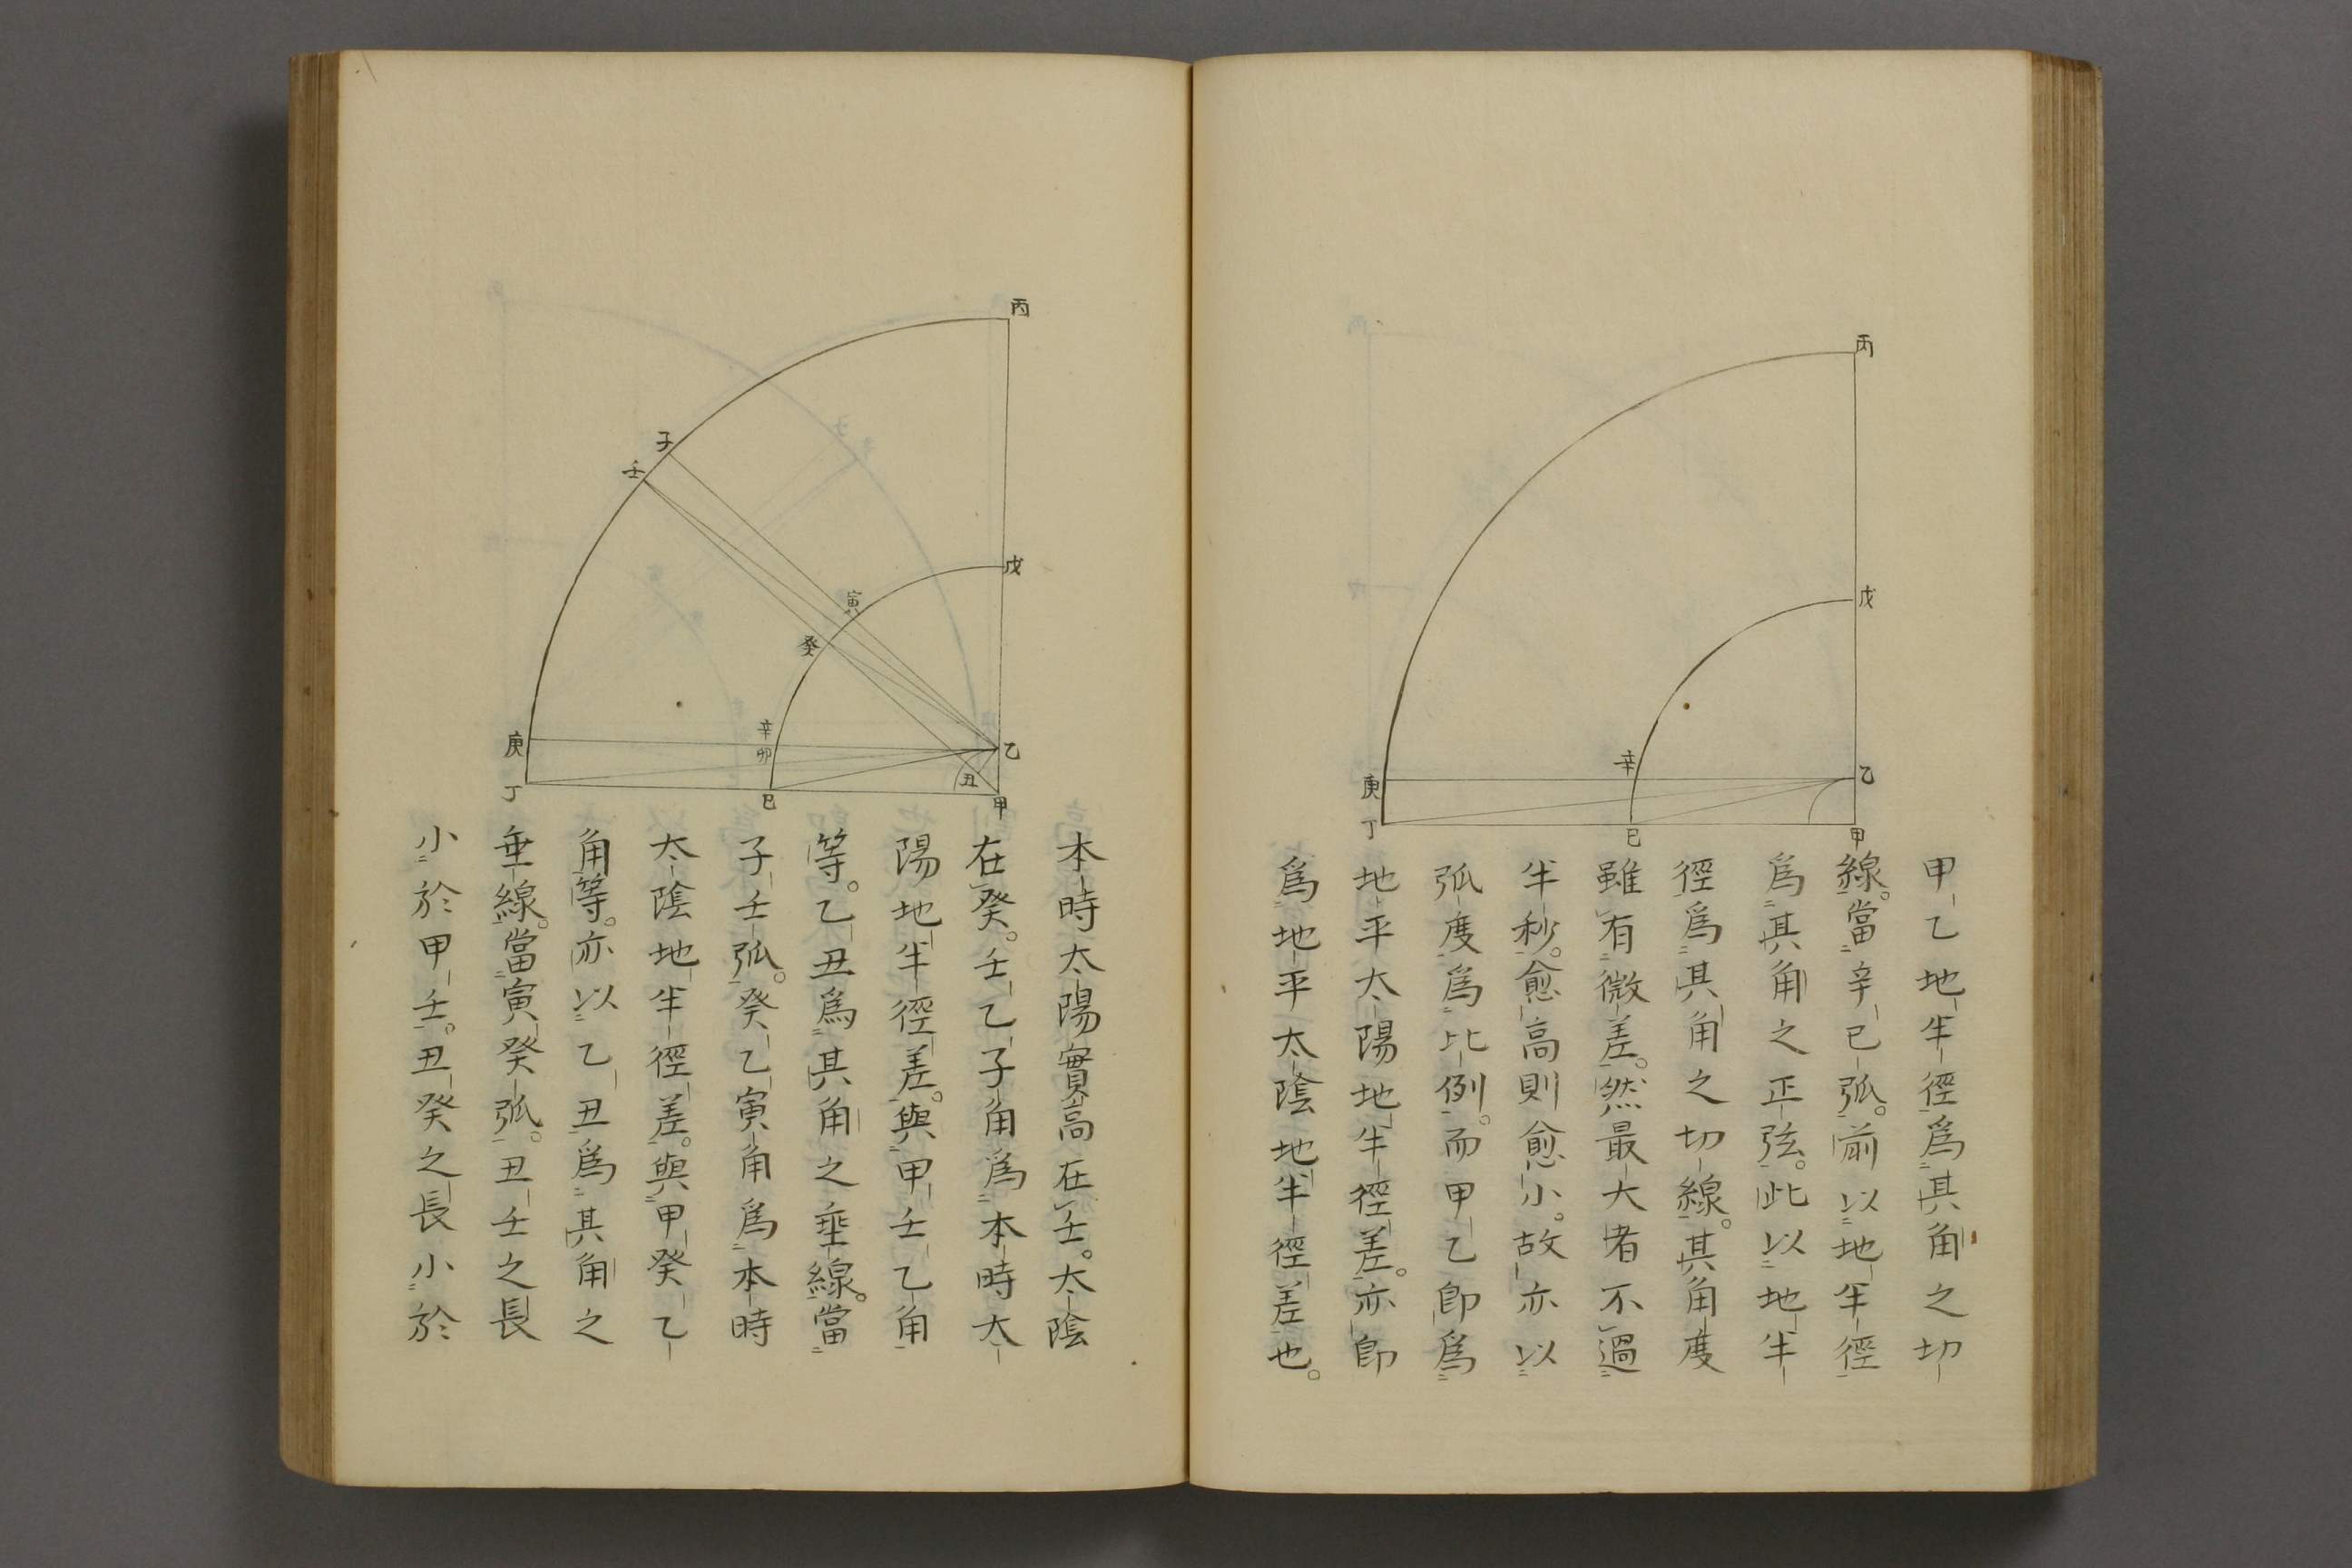 丙
戊
乙
甲
辛
己
庚
丁
甲乙地半徑爲其角之切
線。當辛己弧。前以地半徑
爲其角之正弦。此以地半
徑爲其角之切線。其角度
雖有微差。然最大者不過
半秒。愈高則愈小。故亦以
弧度爲比例。而甲乙卽爲
地平太陽地半徑差。亦卽
爲地平太陰地半徑差也。
丙
子
壬
戊
寅
癸
乙
辛
卯
庚
丑
丁
己
甲
本時太陽實高在壬。太陰
在癸。壬乙子角爲本時太
陽地半徑差。與甲壬乙角
等。乙丑爲其角之垂線。當
子壬弧。癸乙寅角爲本時
太陰地半徑差。與甲癸乙
角等。亦以乙丑爲其角之
垂線。當寅癸弧。丑壬之長
小於甲壬。丑癸之長小於